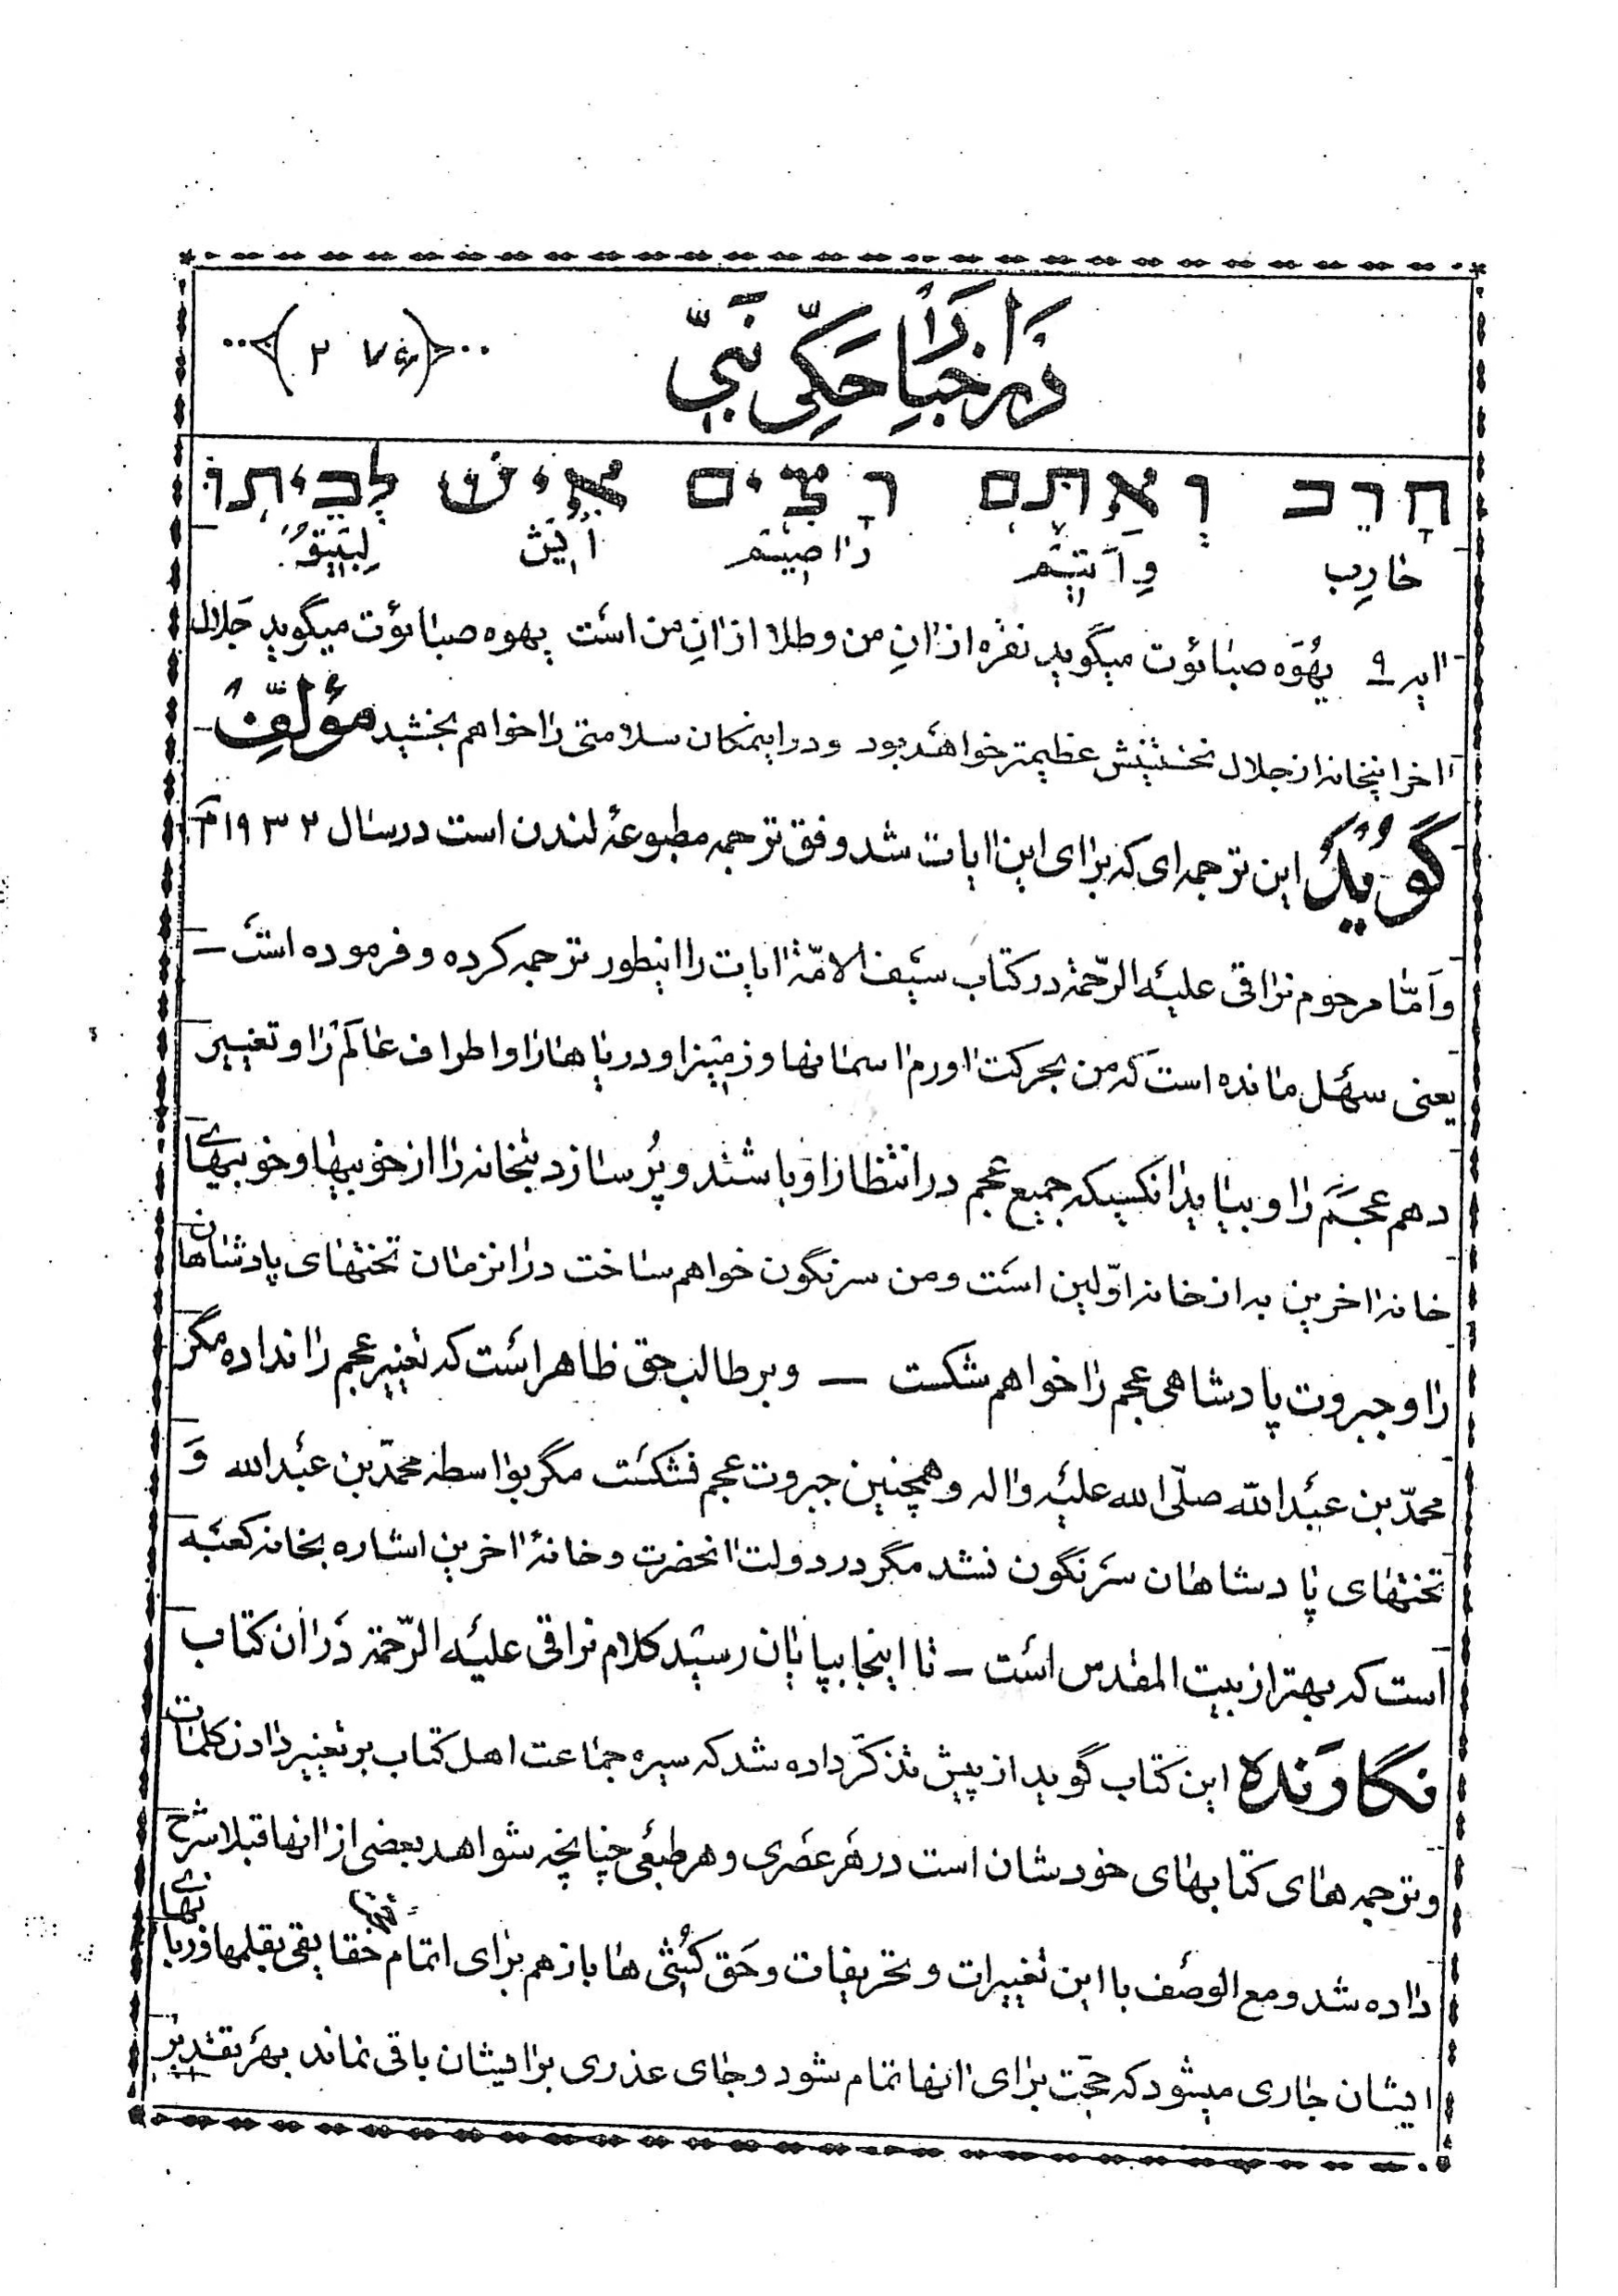 در اخبار حکّی نبیّ
(۲۷۶)
חָרֵב וְאַתֶּם רָצִים אִישׁ לְבֵיתוֹ
خارِب وِاَتِتِم رٰاصیتم اٰیش لِبَیتوُ
ایه ۹ یهُوَه صبٰائوت میگوید نقره ازانِ من وطلا ازانِ من است یهوه صبٰائوت میگوید جَلال
اخر اینخانه از جلال نخستینش عظیمتر خواهد بود ودر اینمکان سلامتی را خواهم بخشید مؤلّفِ
گوُید این ترجمه ای که برای این ایات شد وفق ترجمه مطبوعهٔ لندن است در سال ۱۹۳۲م
واَمّا مرحوم نراقی علیه الرّحمة در کتاب سیف الامّة ایات را اینطور ترجمه کرده و فرموده است –
یعنی سهل مانده است که من بحرکت اورم اسمانها و زمینرا و دریاهارا و اطراف عالم را و تغییر
دهم عجم را و بیاید انکسیکه جمیع عجم در انتظار او باشند و پُر سازد اینخانه را از خوبیها و خوبیهای
خانه اخرین به از خانه اوّلین است و من سرنگون خواهم ساخت در انزمان تختهای پادشاهان
را و جبروت پادشاهی عجم را خواهم شکست — وبر طالب حق ظاهر است که تغییر عجم را نداده مگر
محمّد بن عبد الله صلّی الله علیه واله و همچنین جبروت عجم نشکست مگر بواسطه محمّد بن عبد الله وَ
تختهای پادشاهان سرنگون نشد مگر در دولت انحضرت و خانهٔ اخرین اشاره بخانه کعبه
است که بهتر از بیت المقدس است – تا اینجا بپایان رسید کلام نراقی علیه الرّحمة در ان کتاب
نگارنده این کتاب گوید از پیش تذکّر داده شد که سیره جماعت اهل کتاب بر تغییر دادن کلمات
وترجمه های کتابهای خودشان است در هر عصری و هر طبعی چنانچه شواهد بعضی از انها قبلا شرح
داده شد و مع الوصف با این تغییرات و تحریفات و حَق کُشی ها باز هم برای اتمام حقایقی بقلمها و زبانهای
ایشان جاری میشود که حجّت برای انها تمام شود و جای عذری برایشان باقی نماند بهر تقدیر